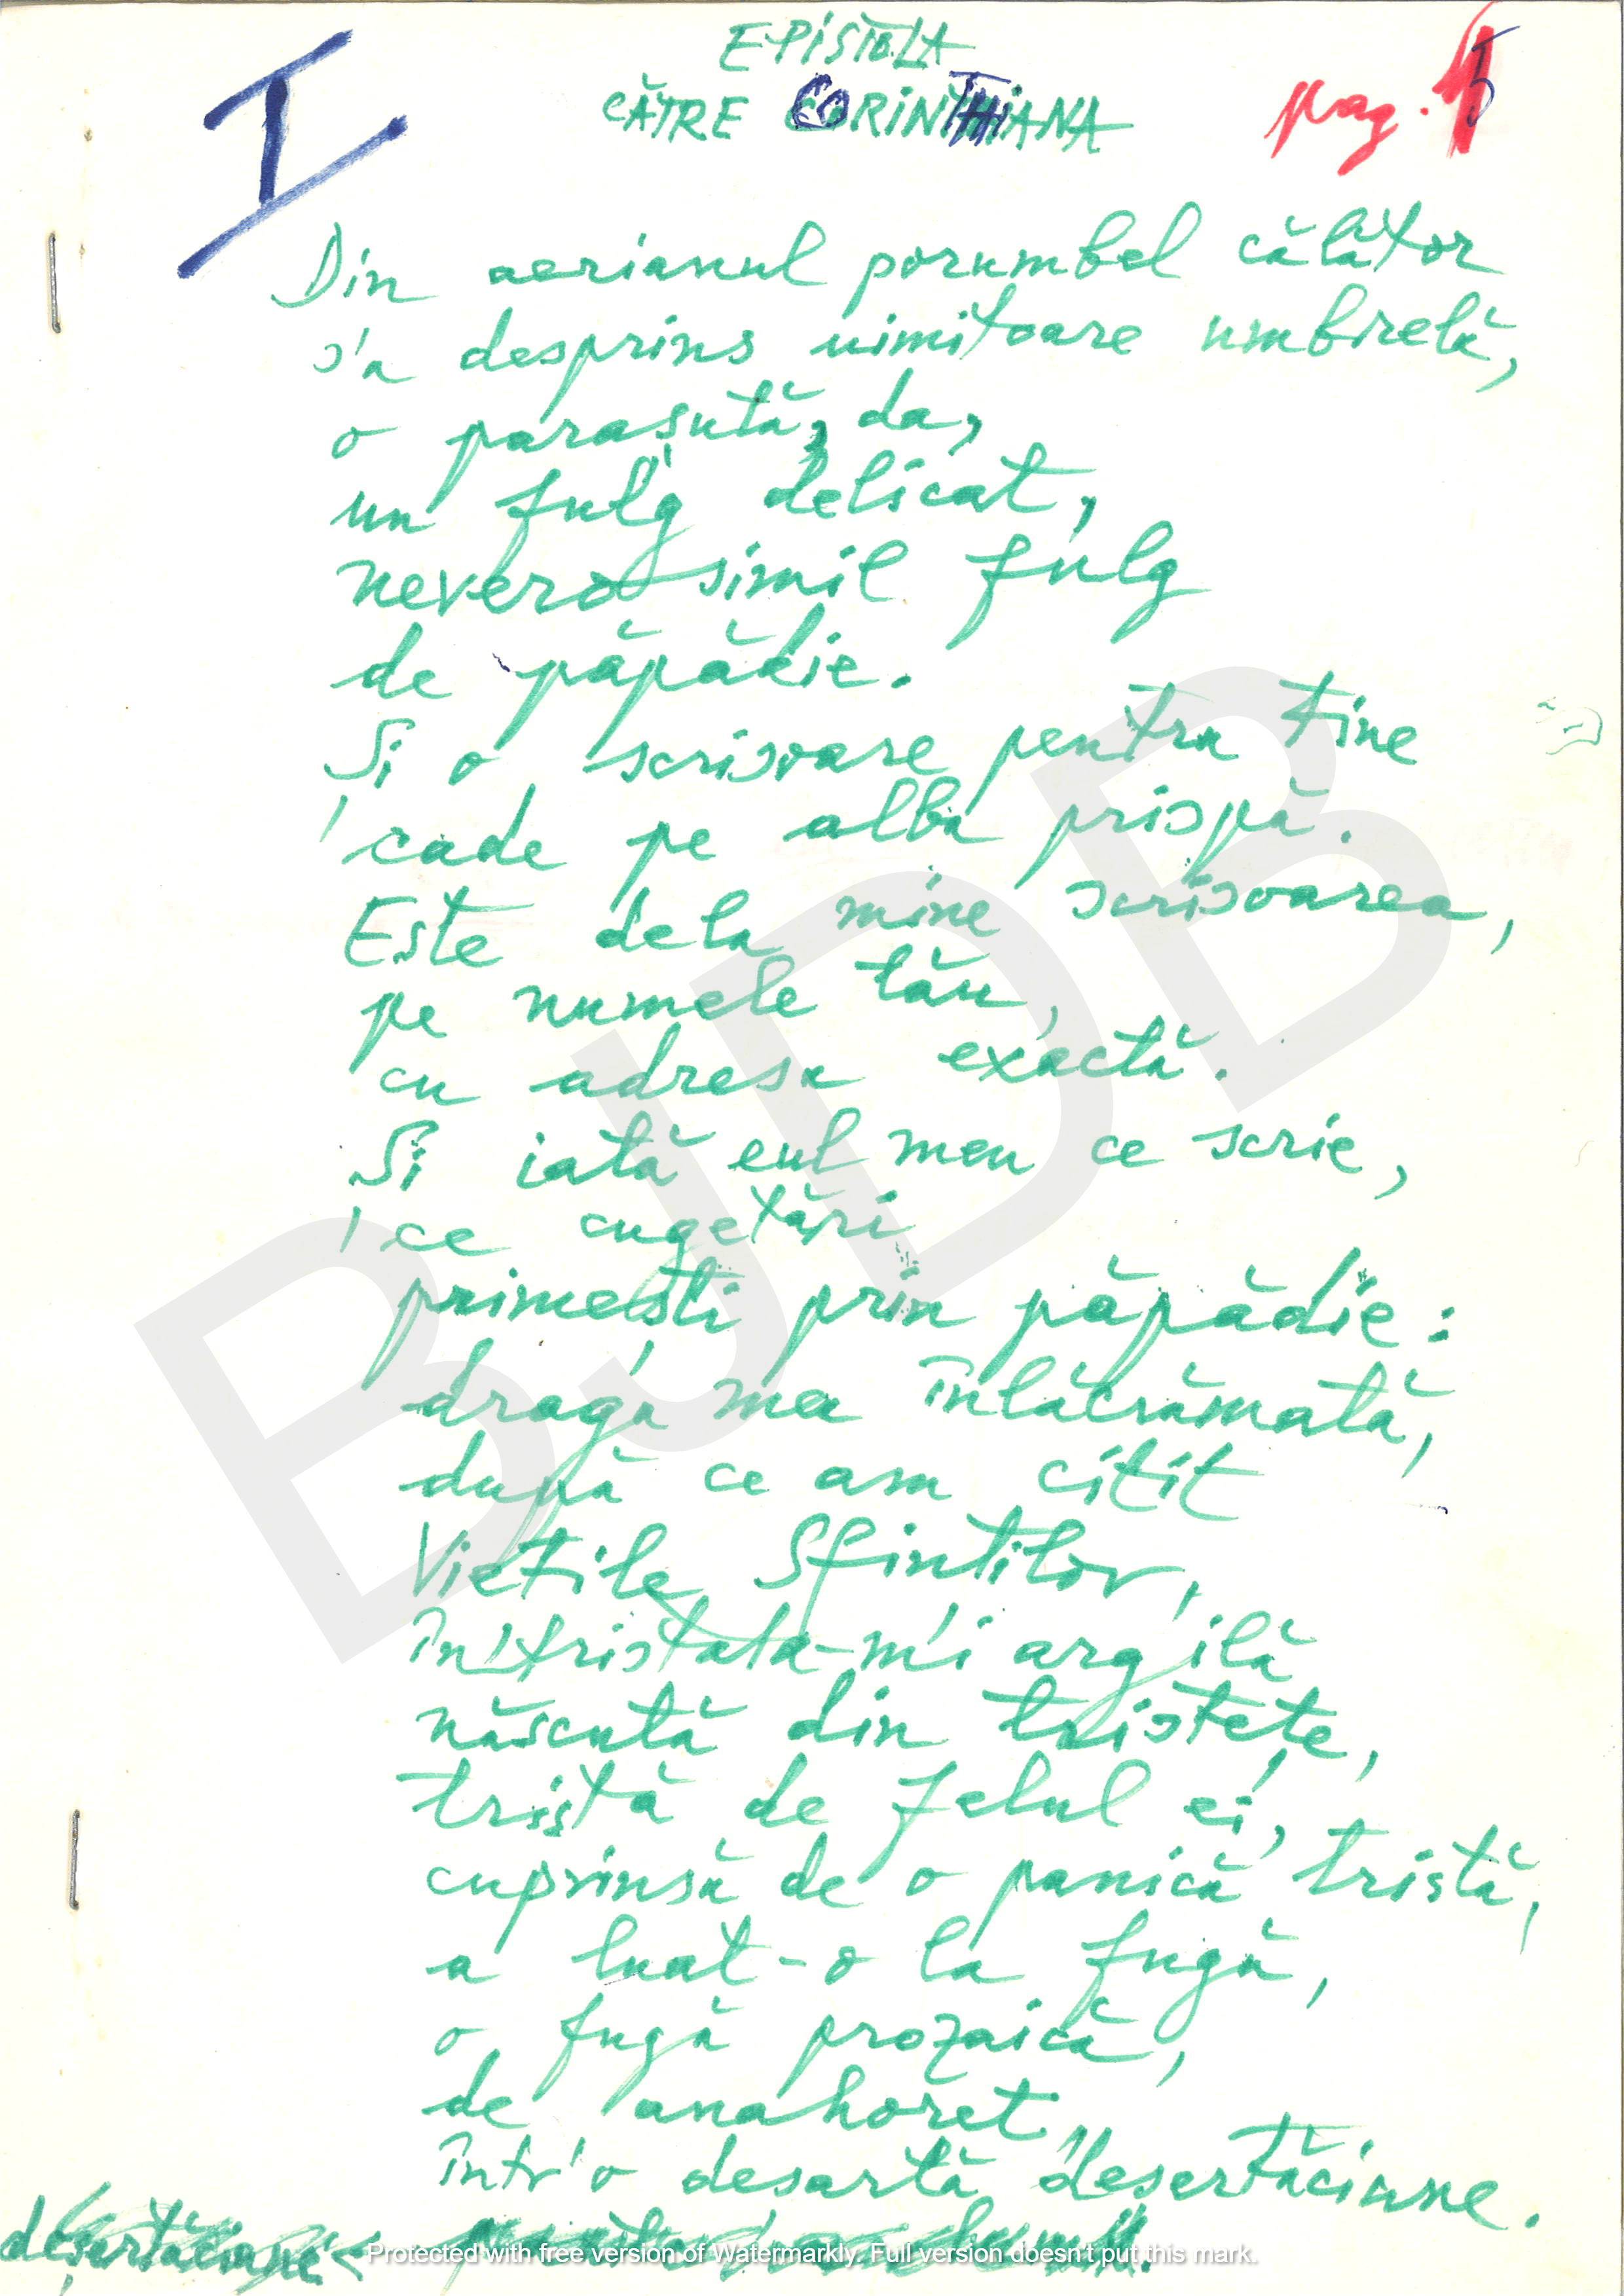 I
EPISTOLA
CĂTRE CORINTHIANA
pag. 5
Din aerianul porumbel călător
s'a desprins uimitoare umbrelă,
o parașută, da,
un fulg delicat,
neverosimil fulg
de păpădie.
Și o scrisoare pentru tine
cade pe alba prispă.
Este dela mine scrisoarea,
pe numele tău,
cu adresa exactă.
Și iată eul meu ce scrie,
ce cugetări
primești prin păpădie:
draga mea înlăcrămată,
după ce am citit
Viețile Sfinților,
întristata-mi argilă
născută din tristețe,
tristă de felul ei,
cuprinsă de o panică tristă,
a luat-o la fugă,
o fugă prozaică,
de anahoret,
într'o deșartă deșertăciune.
deșertăciune
BJDB
Protected with free version of Watermarkly. Full version doesn't put this mark.